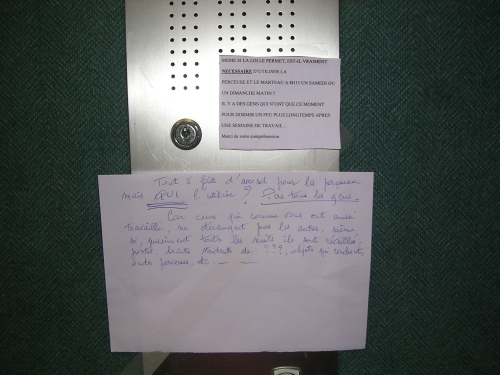 MEME SI LA LOI LE PERMET, EST-IL VRAIMENT
NECESSAIRE D'UTILISER LA
PERCEUSE ET LE MARTEAU A 8H15 UN SAMEDI OU
UN DIMANCHE MATIN ?
IL Y A DES GENS QUI N'ONT QUE CE MOMENT
POUR DORMIR UN PEU PLUS LONGTEMPS APRES
UNE SEMAINE DE TRAVAIL .
Merci de votre compréhension
Tout à fait d'accord pour la perceuse
mais QUI l'utilise ? Pas tous les gens.
Car ceux qui comme vous ont aussi
travaillé, ne dérangent pas les autres, même
si, quasiment toutes les nuits ils sont réveillés.
portes, bruits de ???, objets qui tombent,
perceuse, etc